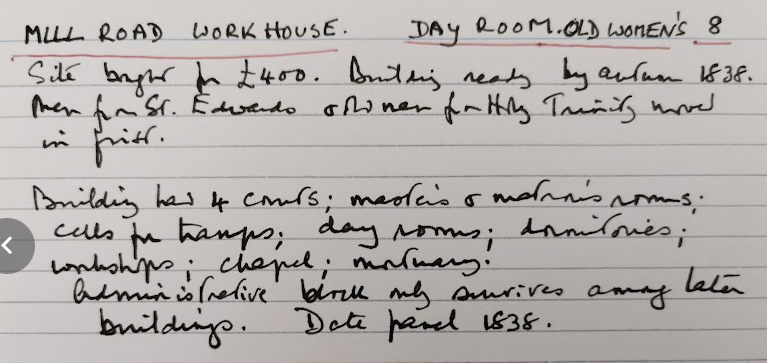 MILL ROAD WORKHOUSE. DAY ROOM. OLD WOMEN'S 8
Site bought for £400. Building ready by autumn 1838.
Men from St. Edwards & women from Holy Trinity moved
in first.
Building has 4 courts; master's & matron's rooms;
cells for tramps; day rooms; dormitories;
workshops; chapel; mortuary.
Administrative block only survives among later
buildings. Date panel 1838.